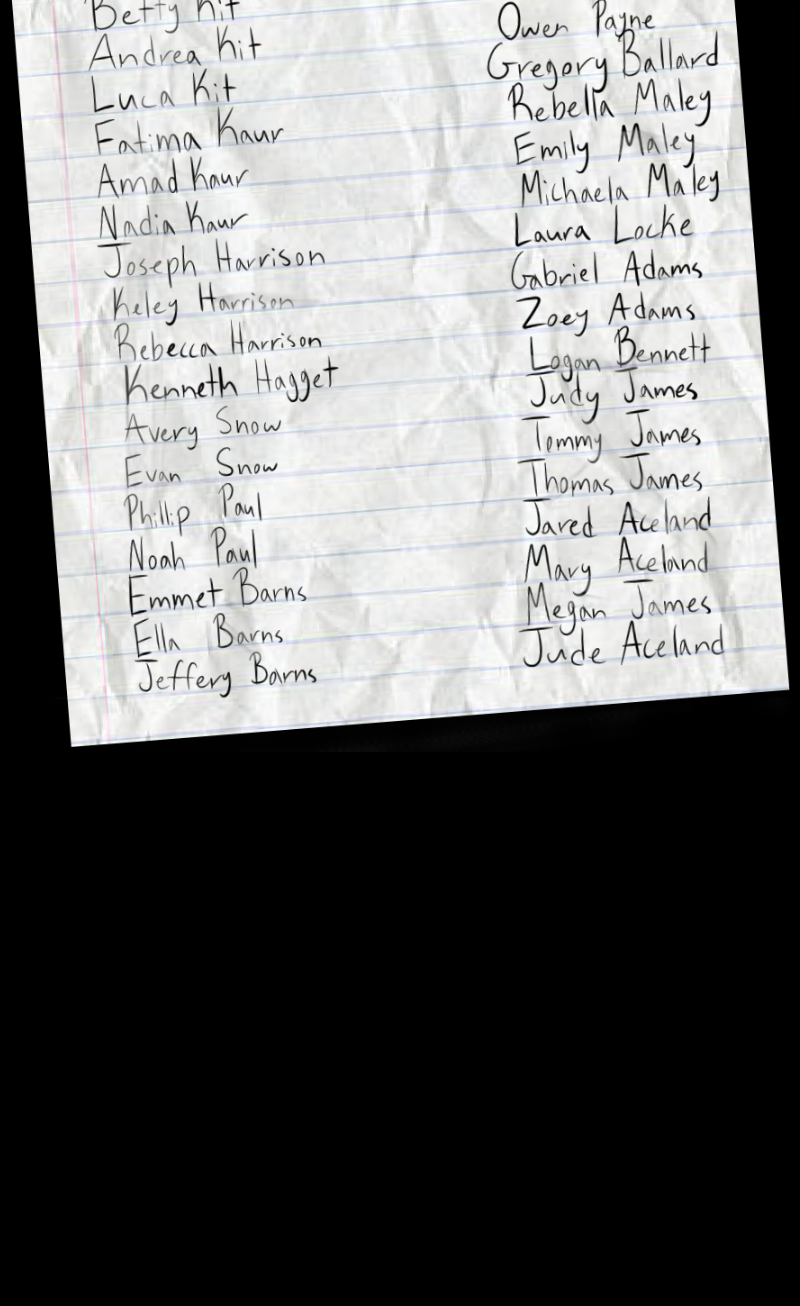 Betty Kit
Andrea Kit
Luca Kit
Fatima Kaur
Amad Kaur
Nadia Kaur
Joseph Harrison
Keley Harrison
Rebecca Harrison
Kenneth Hagget
Avery Snow
Evan Snow
Phillip Paul
Noah Paul
Emmet Barns
Ella Barns
Jeffery Barns
Owen Payne
Gregory Ballard
Rebella Maley
Emily Maley
Michaela Maley
Laura Locke
Gabriel Adams
Zoey Adams
Logan Bennett
Judy James
Tommy James
Thomas James
Jared Aceland
Mary Aceland
Megan James
Jude Aceland